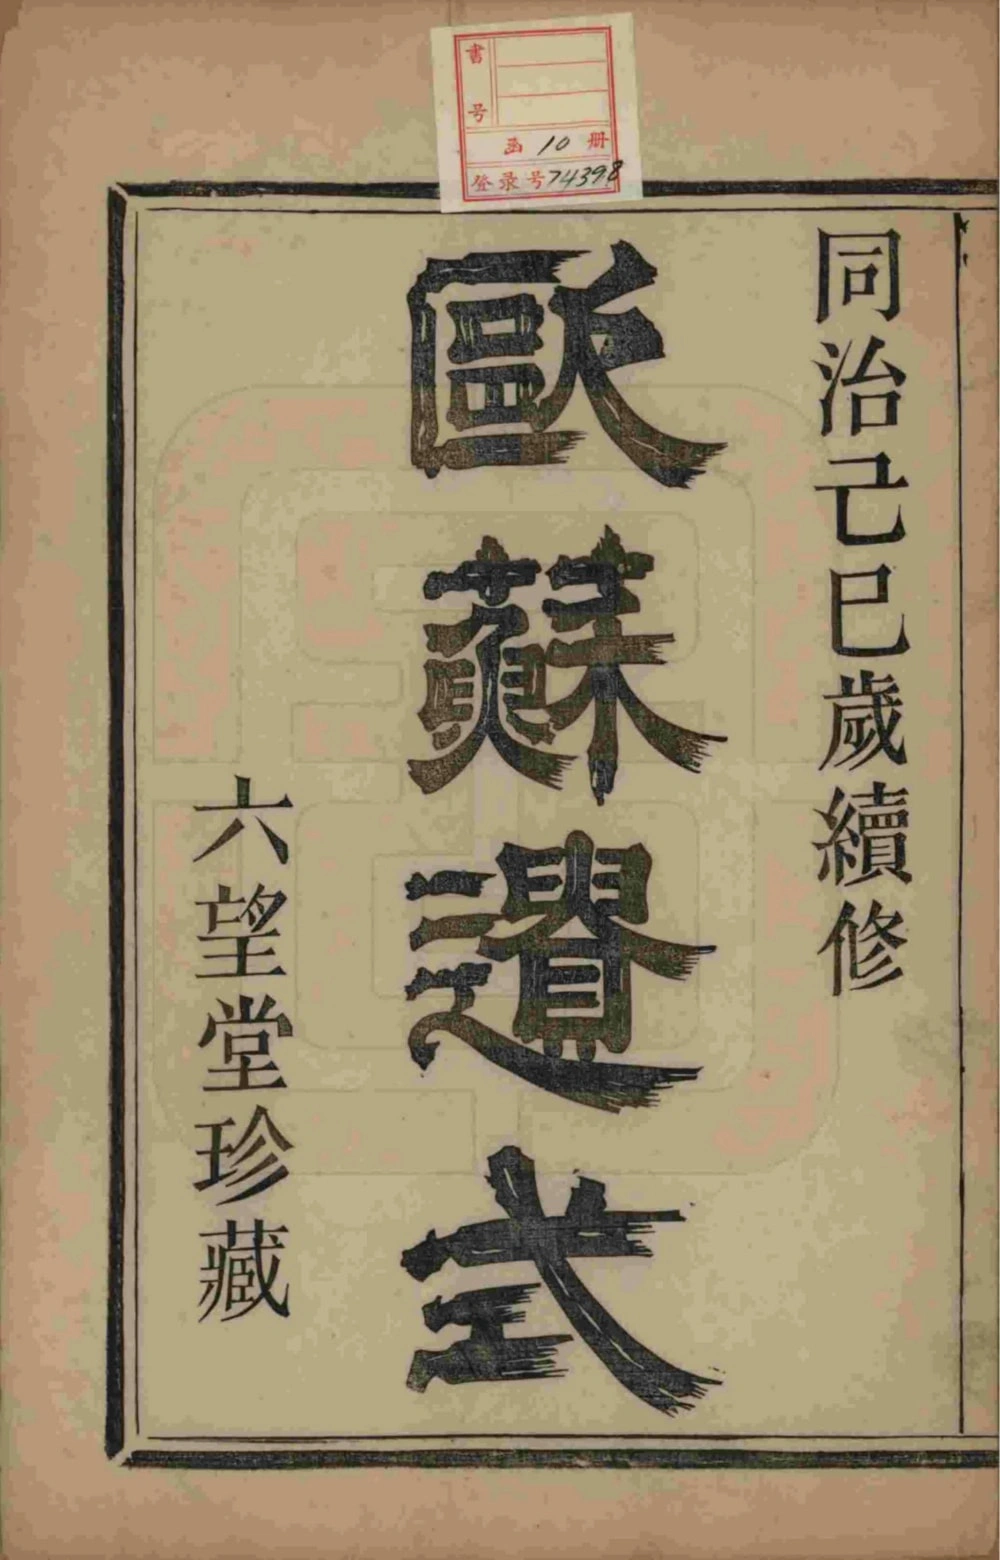 書号
函 10 册
登录号74398
同治己巳歲續修
歐蘇遺式
六望堂珍藏